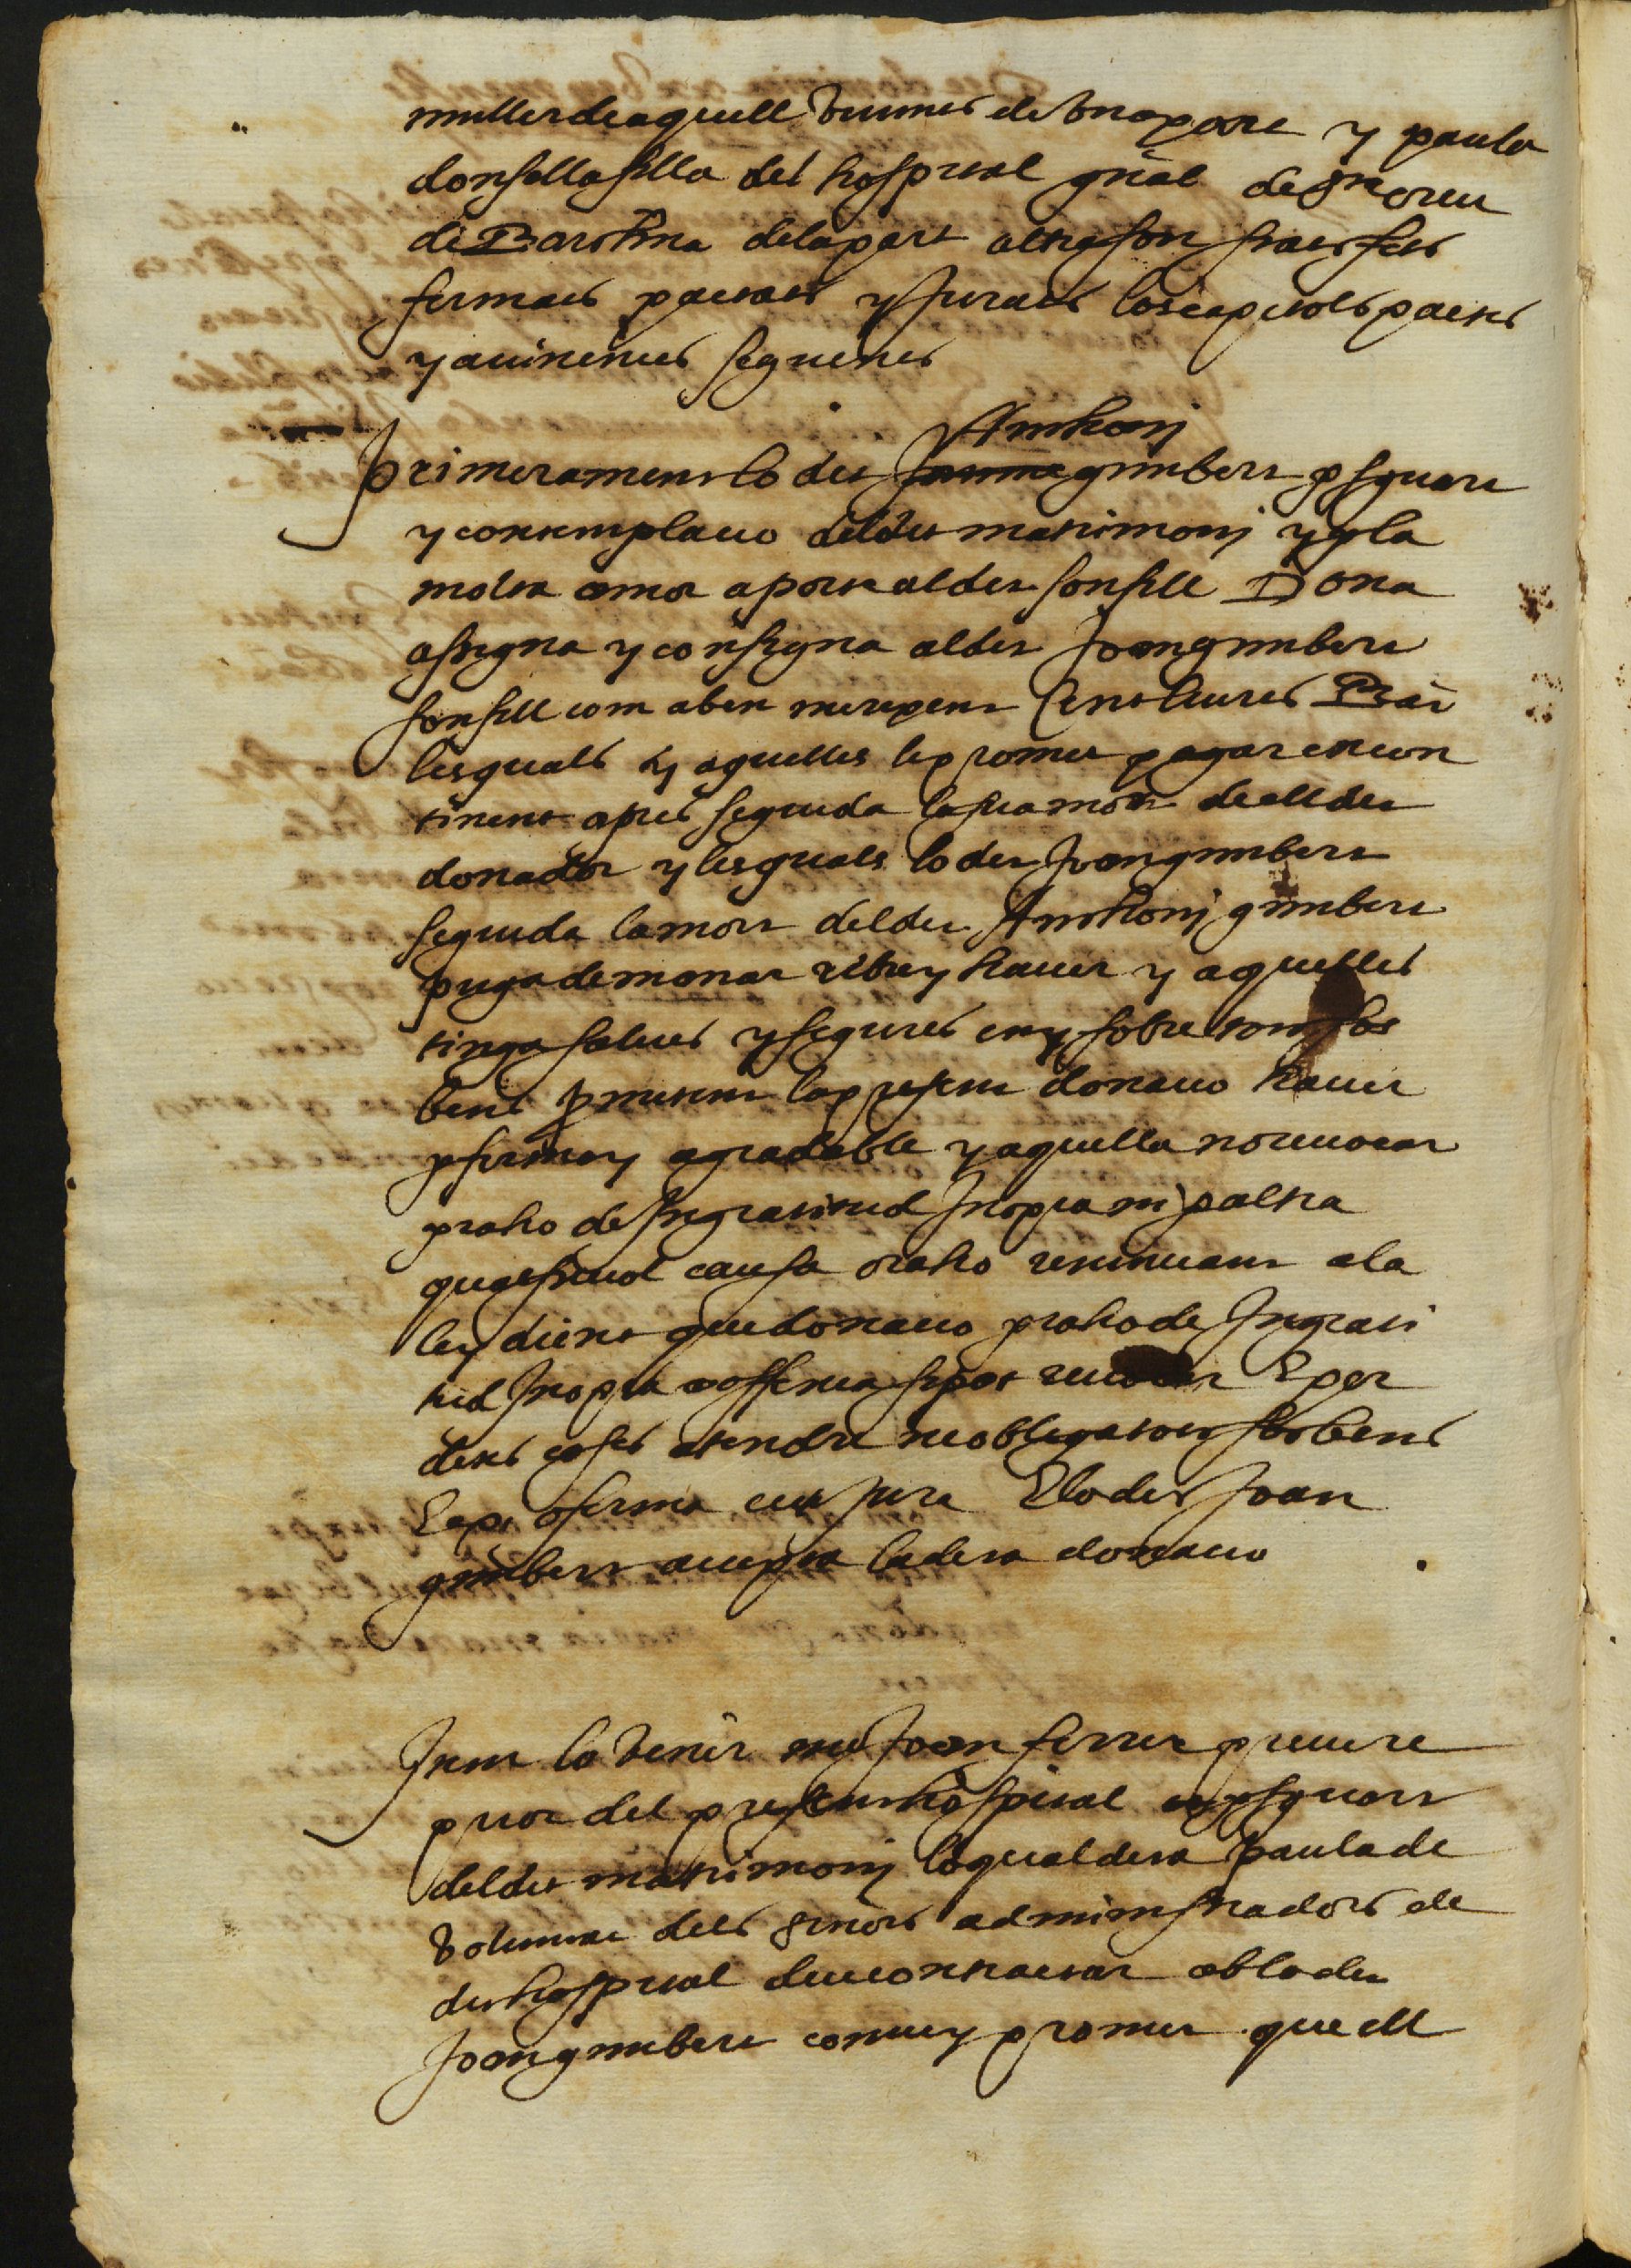 muller de aquell vivint de una part y paula
donsella filla del hospital gñal de sta creu
de Barchna de la part altra son stats fets
firmats pactats y jurats los capitols pactes
y avinences seguents
Anthoni
Primerament lo dit Jaume gimbert p sguart
y contemplacio del dit matrimoni y p la
molta amor aporta al dit son fill Dona
assigna y consigna al dit Joan gimbert
son fill com a ben merexent Cent liures Bar
les quals y aquelles le promet pagar encon
tinent apres seguida la sua mort de ell dit
donador y les quals lo dit Joan gimbert
seguida la mort del dit Anthoni gimbert
puga demanar rebre y haver y aquelles
tinga salves y segures en y sobre tots sos
bens prometent la present donacio haver
p ferma y agradable y aquella no revocar
p raho de Ingratitud Inopia ni p altra
qualsevol causa o raho renunciant a la
ley dient que donacio p raho de Ingrati
tud Inopia o offensa se pot revocar E per
dites coses atendre ne obliga tots sos bens
E axi o ferma y jura E lo dit Joan
gimbert accepta la dita donacio
Item lo venir mº Joan ferrer prevere
prior del present hospital en p sguart
del dit matrimoni lo qual dita Paula de
voluntat dels señors administradors de
dit hospital deu contractar ab lo dit
Joan gimbert conve y promet que ell